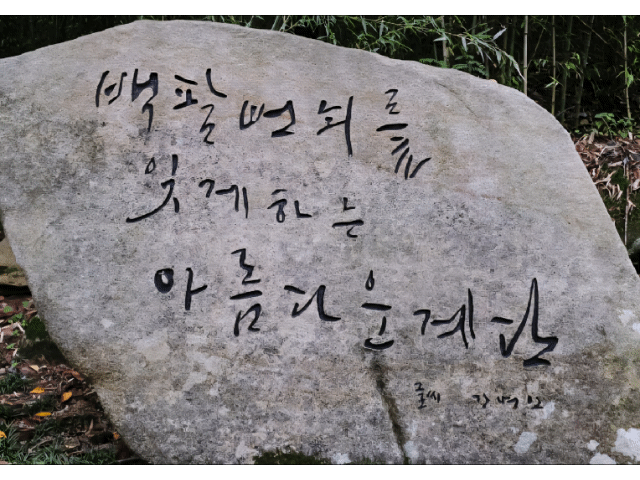 백팔번뇌를
잊게하는
아름다운계단
글씨 강병인